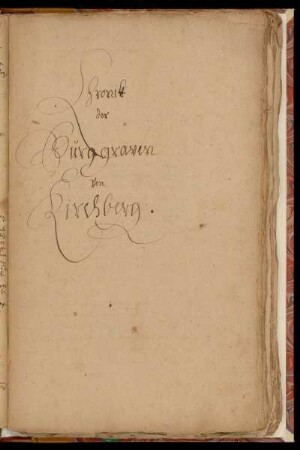 Chronik
der
Burggraven
von
Kirchberg.